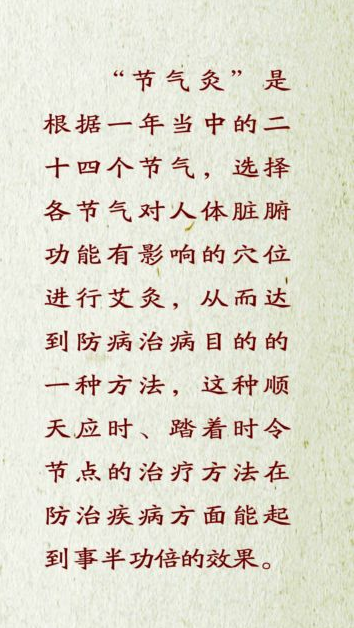 “节气灸”是
根据一年当中的二
十四个节气，选择
各节气对人体脏腑
功能有影响的穴位
进行艾灸，从而达
到防病治病目的的
一种方法，这种顺
天应时、踏着时令
节点的治疗方法在
防治疾病方面能起
到事半功倍的效果。